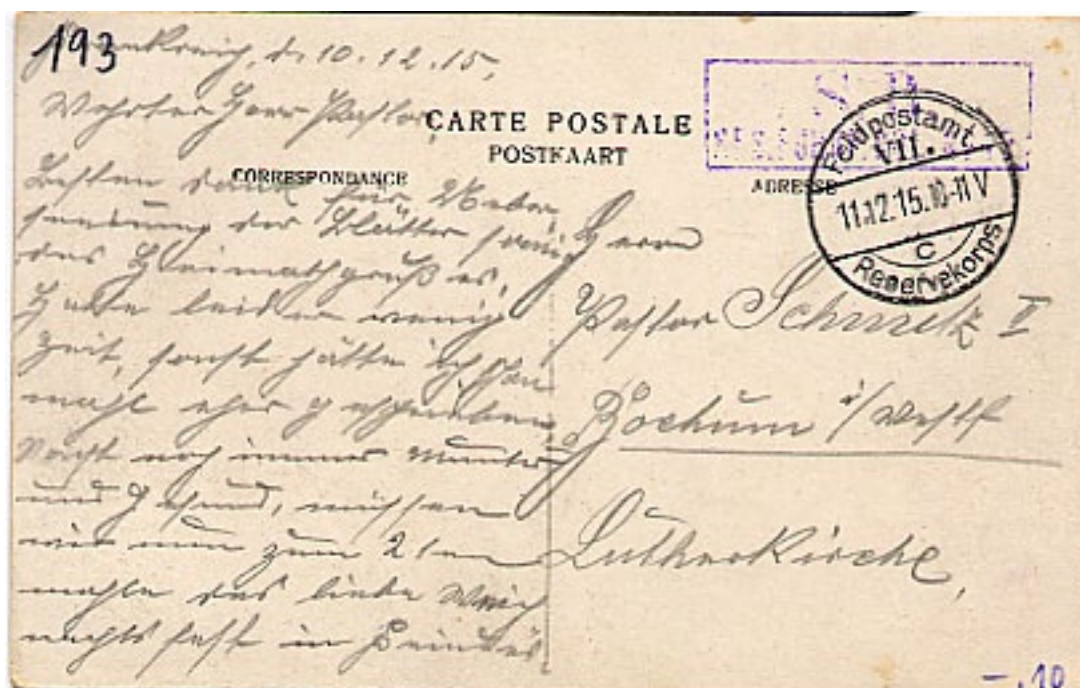 193
Frankreich, d. 10.12.15,
Wehrter Herr Pastor,
CARTE POSTALE
POSTKAART
CORRESPONDANCE
ADRESSE
Feldpostamt
VII.
11.12.15.10-11 V
c
Reservekorps
Besten Dank für Ueber
sendung der Blätter sowie
des Heimathgruß es,
Hatte leider wenig
Zeit, sonst hätte ich schon
mahl eher geschrieben,
noch immer munter
und gesund, müssen
wir nun zum 2ten
mahle das liebe Weih
nachts fest in
Herrn
Pastor Schmetz II
Bochum i/Westf
Lutherkirche,
-.10